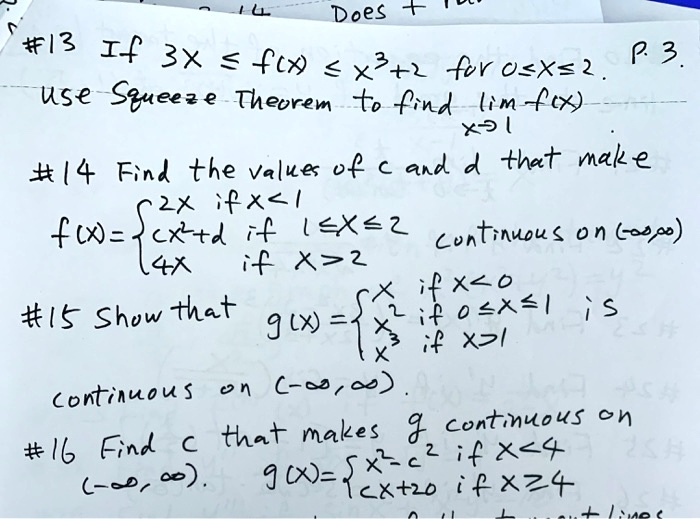 14 Does
#13 If 3x ≤ f(x) ≤ x³+2 for 0≤x≤2. P. 3
use Squeeze Theorem to find lim f(x)
x→1
#14 Find the values of c and d that make
f(x) = { 2x if x<1
cx²+d if 1≤x≤2 continuous on (-∞,∞)
4x if x>2
#15 Show that g(x) = { x if x<0
x² if 0≤x≤1 is
x³ if x>1
continuous on (-∞,∞).
#16 Find c that makes g continuous on
(-∞,∞). g(x) = { x²-c² if x<4
cx+20 if x≥4